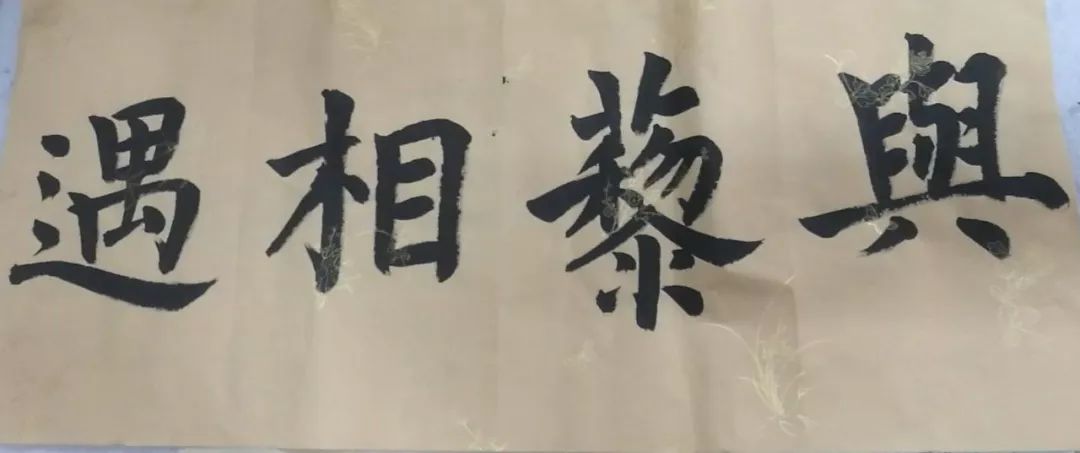 與黎相遇